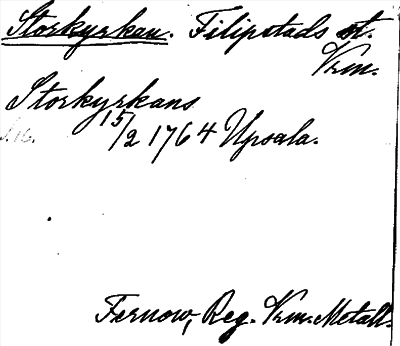 Storkyrkan. Filipstads st.
Vrm.
Storkyrkans
15/2 1764 Upsala.
Fernow, Reg. Vrm. Metall.